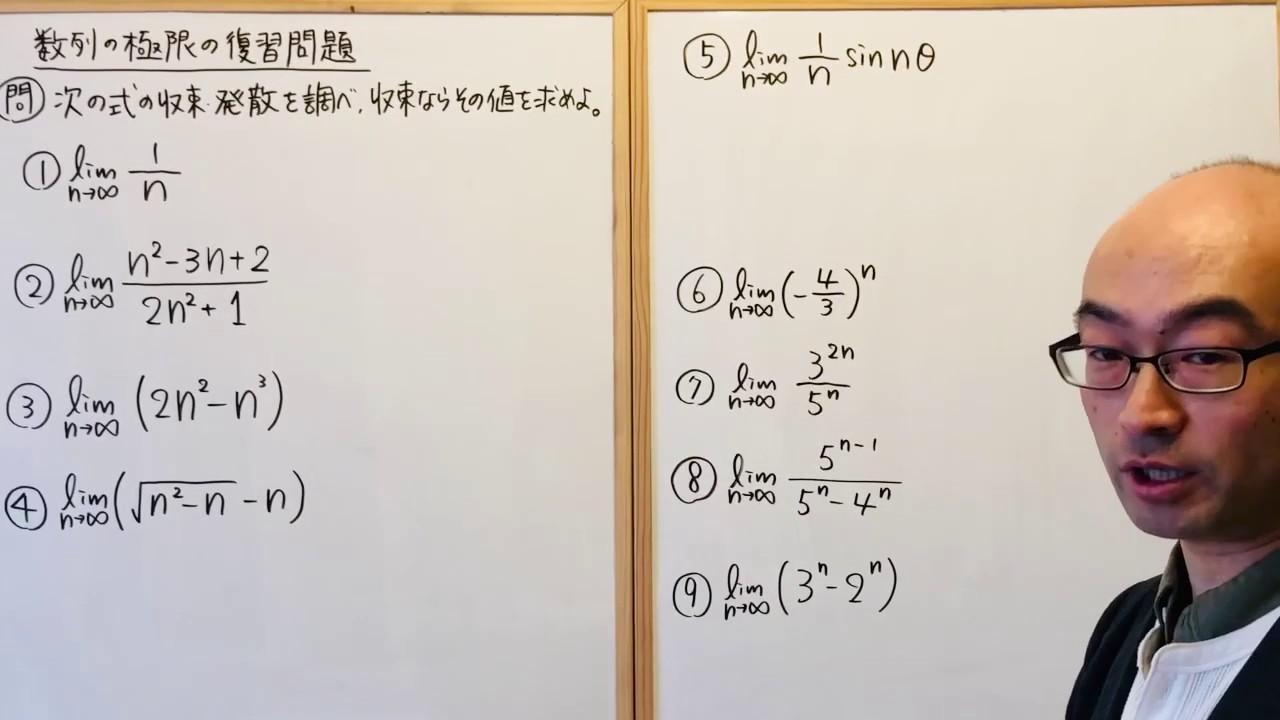 数列の極限の復習問題
問 次の式の収束・発散を調べ、収束ならその値を求めよ。
① lim_{n→∞} 1/n
② lim_{n→∞} (n²-3n+2)/(2n²+1)
③ lim_{n→∞} (2n²-n³)
④ lim_{n→∞} (√(n²-n) -n)
⑤ lim_{n→∞} 1/n sin nθ
⑥ lim_{n→∞} (-4/3)^n
⑦ lim_{n→∞} 3^{2n}/5^n
⑧ lim_{n→∞} 5^{n-1}/(5^n-4^n)
⑨ lim_{n→∞} (3^n-2^n)